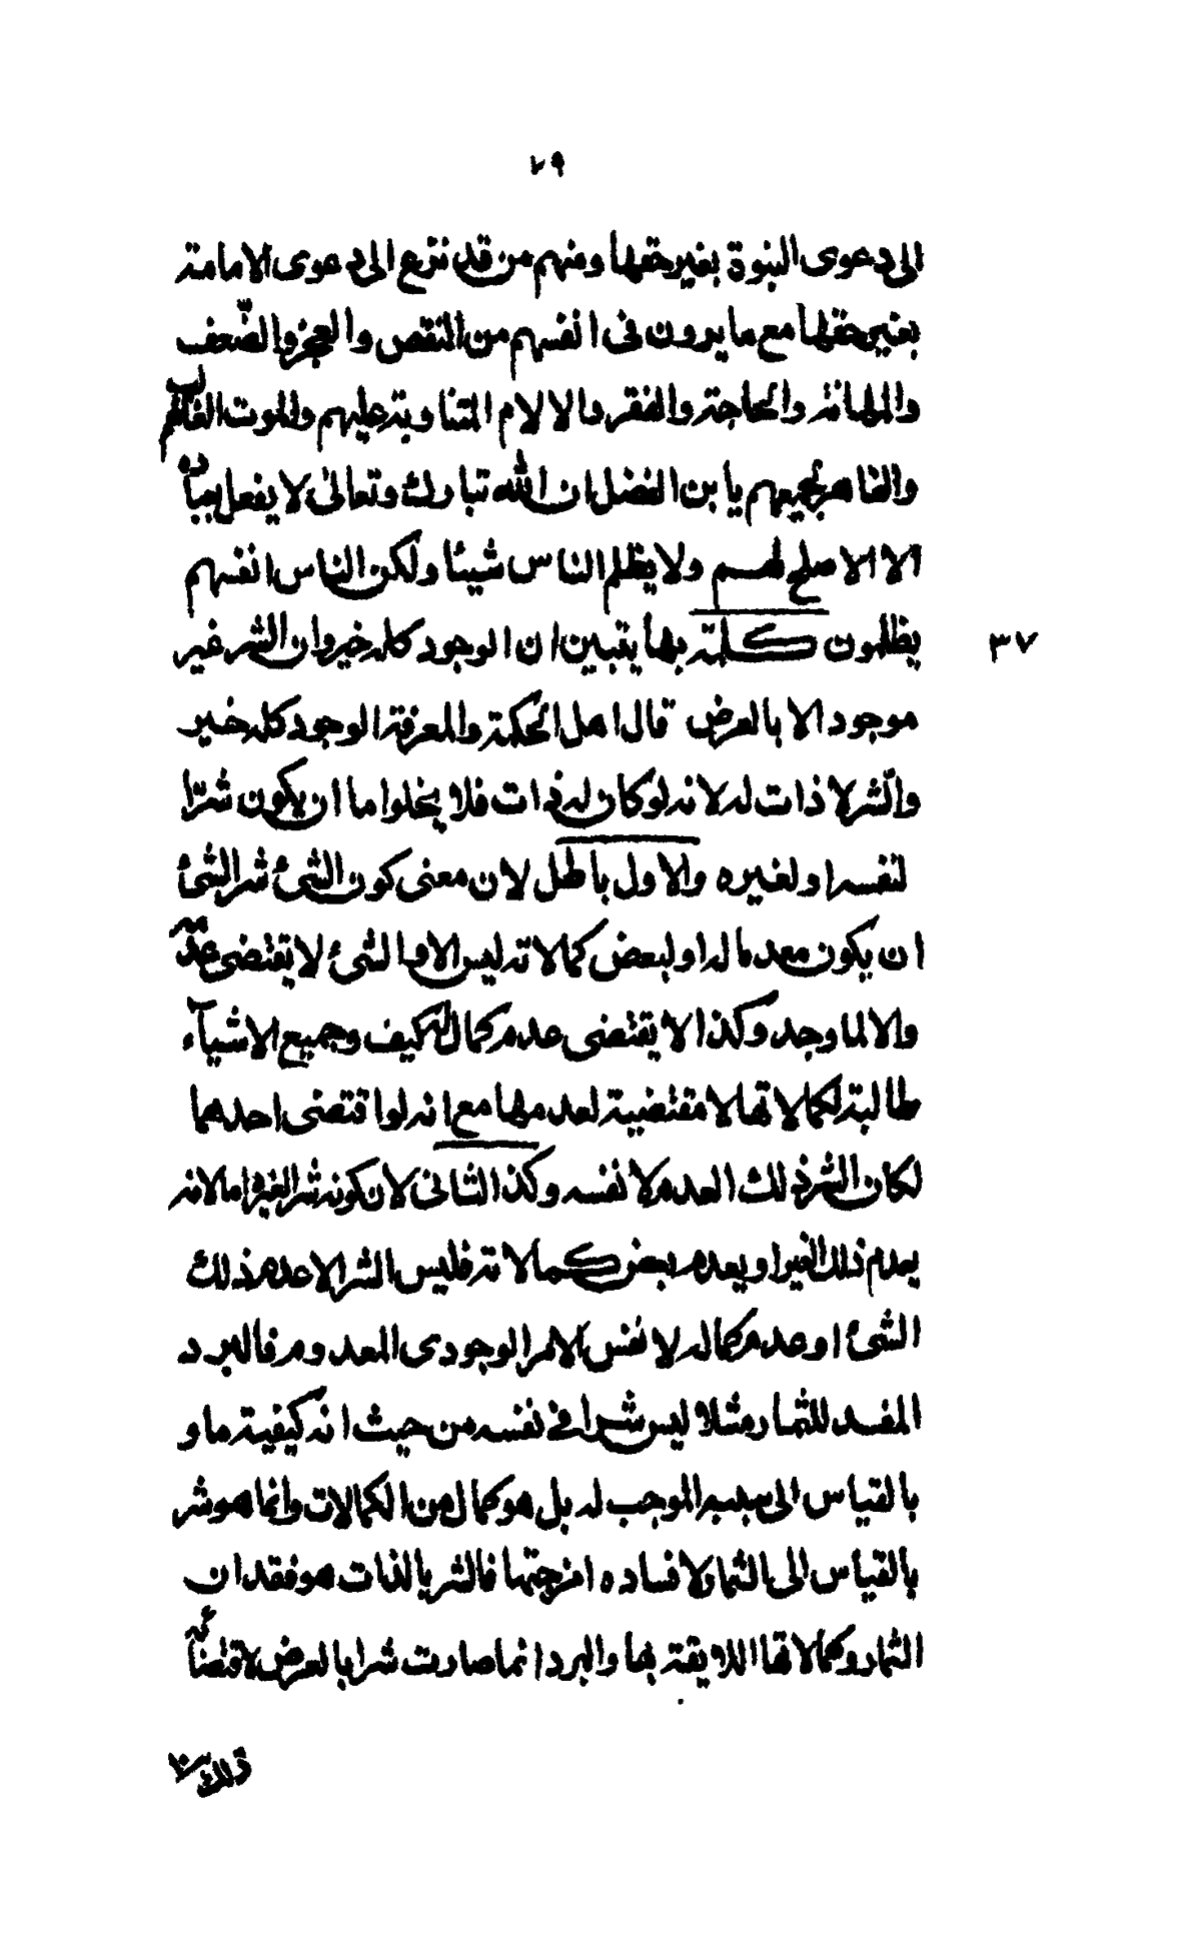 ٢٩
الى دعوى النبوة بغير حقها ومنهم من قد نزع الى دعوى الامامة
بغير حقها مع ما يرون فى انفسهم من النقص والعجز والضّعف
والمهانة والحاجة والفقر والالام المتناوبة عليهم والموت الغالب لهم
والقاهر لجميعهم يا بن الفضل ان الله تبارك وتعالى لا يفعل بعباده
الا الاصلح لهم ولا يظلم الناس شيئا ولكن الناس انفسهم
يظلمون كلمة بها يتبين ان الوجود كله خير وان الشر غير
٣٧
موجود الا بالعرض قال اهل الحكمة والمعرفة الوجود كله خير
والشّر لا ذات له لانه لو كان له ذات فلا يخلوا ما ان يكون شرّا
لنفسه او لغيره والاول باطل لان معنى كون الشئ شر الشئ
ان يكون معدما له او لبعض كمالاته ليس الا والشئ لا يقتضى عدمه
والا لما وجد وكذا لا يقتضى عدم كماله كيف وجميع الاشيآء
طالبة لكمالاتها لا مقتضية لعدمها مع انه لو اقتضى احدهما
لكان الشر ذلك العدم لا نفسه وكذا الثانى لان كونه شر الغيره اما لانه
يعدم ذلك الغير او يعدم بعض كمالاته فليس الشر الا عدم ذلك
الشئ او عدم كماله لا نفس الامر الوجودى المعدوم فالبرد
المفسد للثمار مثلا ليس شرا فى نفسه من حيث انه كيفية ما و
بالقياس الى سببه الموجب له بل هو كمال من الكمالات وانما هو شر
بالقياس الى الثمار لافساده امزجتها فالشر بالذات هو فقدان
الثمار وكمالاتها اللايقة بها والبرد انما صارت شرا بالعرض لاقتضائه
ذلك